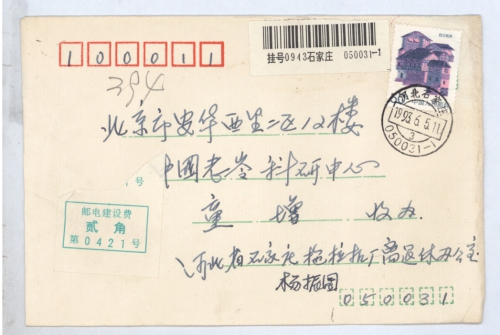 挂号0943石家庄 050031-1
100011
394
河北石家庄
1993.6.5.11
3
050031-1
北京市安华西里二区12楼
中国老龄科研中心
号
童 增 收 办
邮电建设费
贰 角
第0421号
河北省石家庄拖拉机厂离退休办公室
杨振国
050031